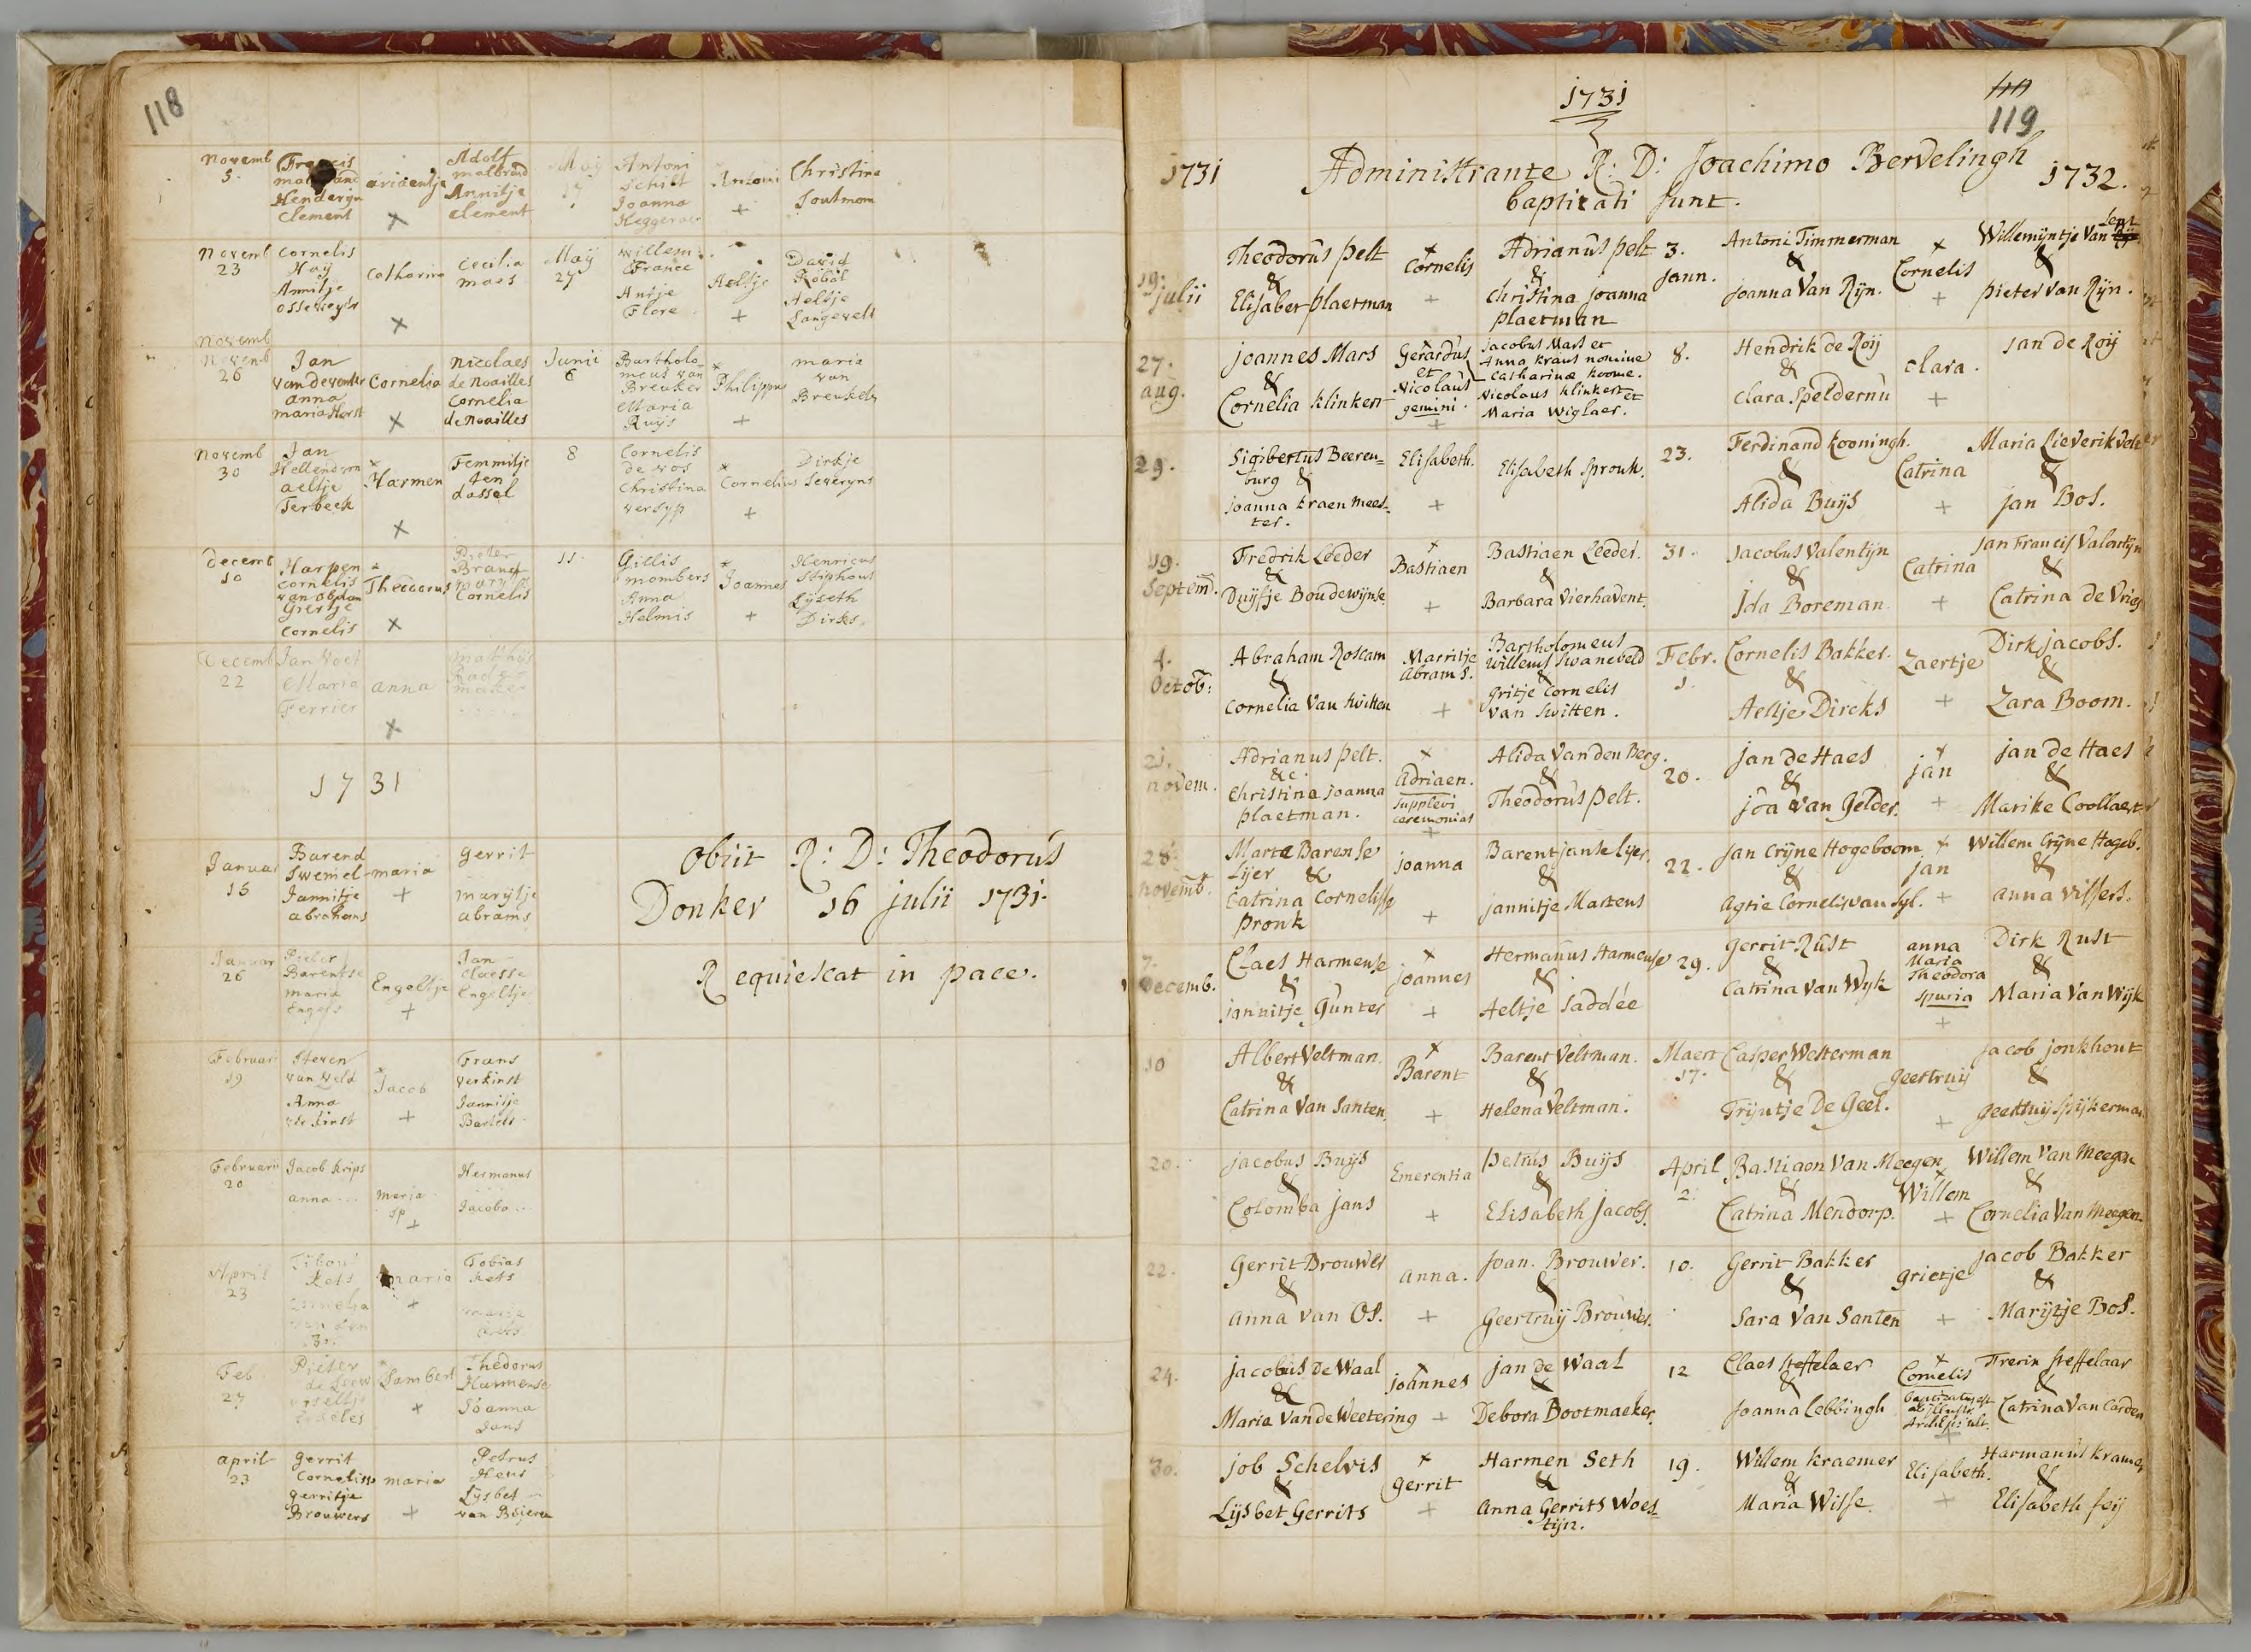 118
Novemb
5.
Hendergn
Clement
aridentje
Adolf
malbrand
Annitje
Clement
May
Antoni
Schilt
Joanna
Antoni
Christina
Soutmom
Novemb
23
Cornelis
Hoy
Annitje
Catharina
Cecilia
maes
May
27
Willem
France
Antje
Flore
Aeltje
David
Aeltje
Langevelt
Novemb
Novemb
26
Jan
van deventer
anna
maria Horst
Cornelia
Nicolaes
de Noailles
Cornelia
de Noailles
Junii
6
Bartholo
meus van
Breuker
Maria
Ruijs
Philippus
maria
van
Breukelen
Novemb
30
Jan
aeltje
Terbeek
Harmen
Femmitje
ten
dassel
8
Cornelis
de vos
Christina
versyp
Cornelius
Dirkje
Severyns
Decemb
10
Harpen
Cornelis
van obdam
giertje
Cornelis
Theodorus
Pieter
Cornelis
11.
Gillis
mombers
Anna
Helmis
Joannes
Henricus
Stiphout
Lijseth
Dirks
Decemb
22
Jan Voet
Maria
Ferrier
anna
Matthijs
Rade-
maker
1731
Januar
15
Barend
Swemel
Jannitje
abrahams
maria
gerrit
marijtje
abrams
Januar
26
Pieter
Barentse
maria
Engels
Engeltje
Jan
Claesse
Engeltje
Februari
19
Steven
van Veld
Anna
verkinst
Jacob
Frans
verkinst
Jannitje
Bartels
Februarii
20
Jacob krips
anna ...
maria
sp
Hermanus
...
Jacoba ...
April
23
Kets
Cornelia
maria
Tobias
kets
maria
kets
Feb
27
Pieter
de Leew
Lambert
Thedorus
Harmense
Joanna
Jans
april
23
gerrit
Cornelisse
gerritje
Brouwers
maria
Petrus
Heus
Lijsbet
van Beijeren
Obiit R: D: Theodorus
Donker 16 julii 1731.
Requiescat in pace.
1731
119
1731
Administrante R: D: Joachimo Bervelingh
1732.
baptizati sunt.
19.
julii
Theodorus pelt
&
Elisabet plaetman
Cornelis
Adrianus pelt
&
Christina Joanna
plaetman
27.
aug.
joannes Mars
&
Cornelia klinkert
Gerardus
et
Nicolaus
gemini.
Jacobus Mars et
Anna kraus nomine
Catharinæ koome.
Nicolaus klinkert et
Maria Wiglaer.
29.
Sigibertus Beeren=
burg &
joanna kraen mees=
ter.
Elisabeth.
Elisabeth Spronk.
19.
Septem.
Fredrik Leeder
&
Duijfje Boudewijnse
Bastiaen
Bastiaen Leeder.
&
Barbara Vierhavent.
4.
Octob:
Abraham Roscam
&
Cornelia Van switten
Marritje
Abrams.
Bartholomeus
Willems Swaneveld
&
gritje Cornelis
van switten.
21.
novem.
Adrianus pelt.
&c.
Christina Joanna
plaetman.
adriaen.
supplevi
ceremonias
Alida Van den Berg.
&
Theodorus pelt.
28.
novemb.
Marte Barense
Lijer &
Catrina Cornelisse
pronk
joanna
Barent janse lijer.
&
jannitje Martens
7.
Decemb.
Claes Harmense
&
jannitje Gunter
joannes
Hermanus Harmense
&
Aeltje Saddée
10
Albert Veltman.
&
Catrina Van Santen
Barent
Barent Veltman.
&
Helena Veltman.
20.
jacobus Buijs
&
Colomba jans
Emerentia
petrus Buijs
&
Elisabeth Jacobs.
22.
Gerrit Brouwer
&
anna van Os.
anna.
Joan. Brouwer.
&
Geertruij Brouwer.
24.
jacobus de Waal
&
Maria Van de Weetering
joannes
jan de Waal
&
Debora Bootmaeker
30.
job Schelvis
&
Lijsbet Gerrits
gerrit
Harmen Seth
&
anna Gerrits Woes=
tijn.
3.
jann.
Antoni Timmerman
&
joanna Van Rijn.
Cornelis
Willemijntje Van
&
pieter van Rijn.
8.
Hendrik de Roij
&
Clara Speldernu
Clara.
jan de Roij
23.
Ferdinand kooningh.
&
Alida Buijs
Catrina
Maria Lieverikvelt
&
jan Bos.
31.
jacobus Valentijn
&
Ida Boreman
Catrina
jan Francis Valentijn
&
Catrina de Vries
Febr.
1.
Cornelis Bakker.
&
Aeltje Dircks
Zaertje
Dirk jacobs.
&
Zara Boom.
20.
jan de Haes
&
joa van Gelder.
jan
jan de Haes
&
Marike Coollaert
22.
jan Crijne Hogeboom
&
Agtie Cornelis van Syl.
jan
Willem Crijne Hogeb.
&
anna Vissers.
29.
Gerrit Rust
&
Catrina Van Wyk
anna
Maria
Theodora
spuria
Dirk Rust
&
Maria Van Wijk
Maert
17.
Casper Westerman
&
Trijntje De Geel.
geertruij
jacob jonkhout
&
geertruij Spijkerman
April
2.
Bastiaen Van Meegen
&
Catrina Mendorp.
Willem
Willem Van Meegen
&
Cornelia Van Meegen
10.
Gerrit Bakker
&
Sara Van Santen
grietje
jacob Bakker
&
Marijtje Bos.
12
Claes Steffelaer
&
joanna Lebbingh
Cornelis
Steffelaar
&
Catrina Van Carden
19.
Willem kraemer
&
Maria Wisse.
Elisabeth.
Harmanus kramer
&
Elisabeth feij